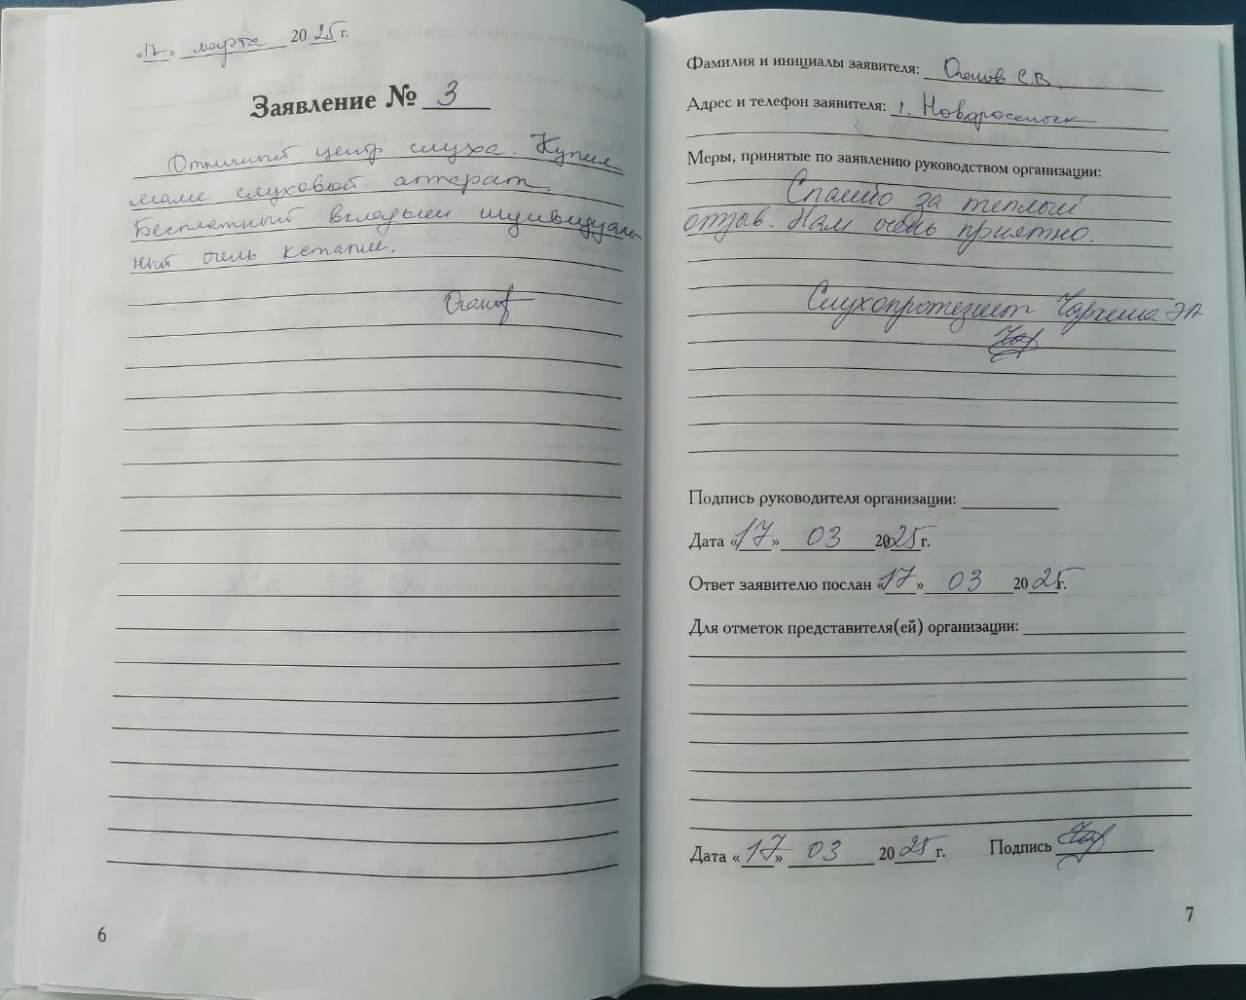 «17» марта 2025 г.
Заявление № 3
Отличный центр слуха. Купил
маме слуховой аппарат.
Бесплатный вкладыш индивидуаль
ный очень кстати.
Фамилия и инициалы заявителя: С.В.
Адрес и телефон заявителя: г. Новороссийск
Меры, принятые по заявлению руководством организации:
Спасибо за теплый
отзыв. Нам очень приятно.
Слухопротезист Чаркина ЭА
Подпись руководителя организации:
Дата «17» 03 2025 г.
Ответ заявителю послан «17» 03 2025 г.
Для отметок представителя(ей) организации:
Дата «17» 03 2025 г. Подпись
6
7